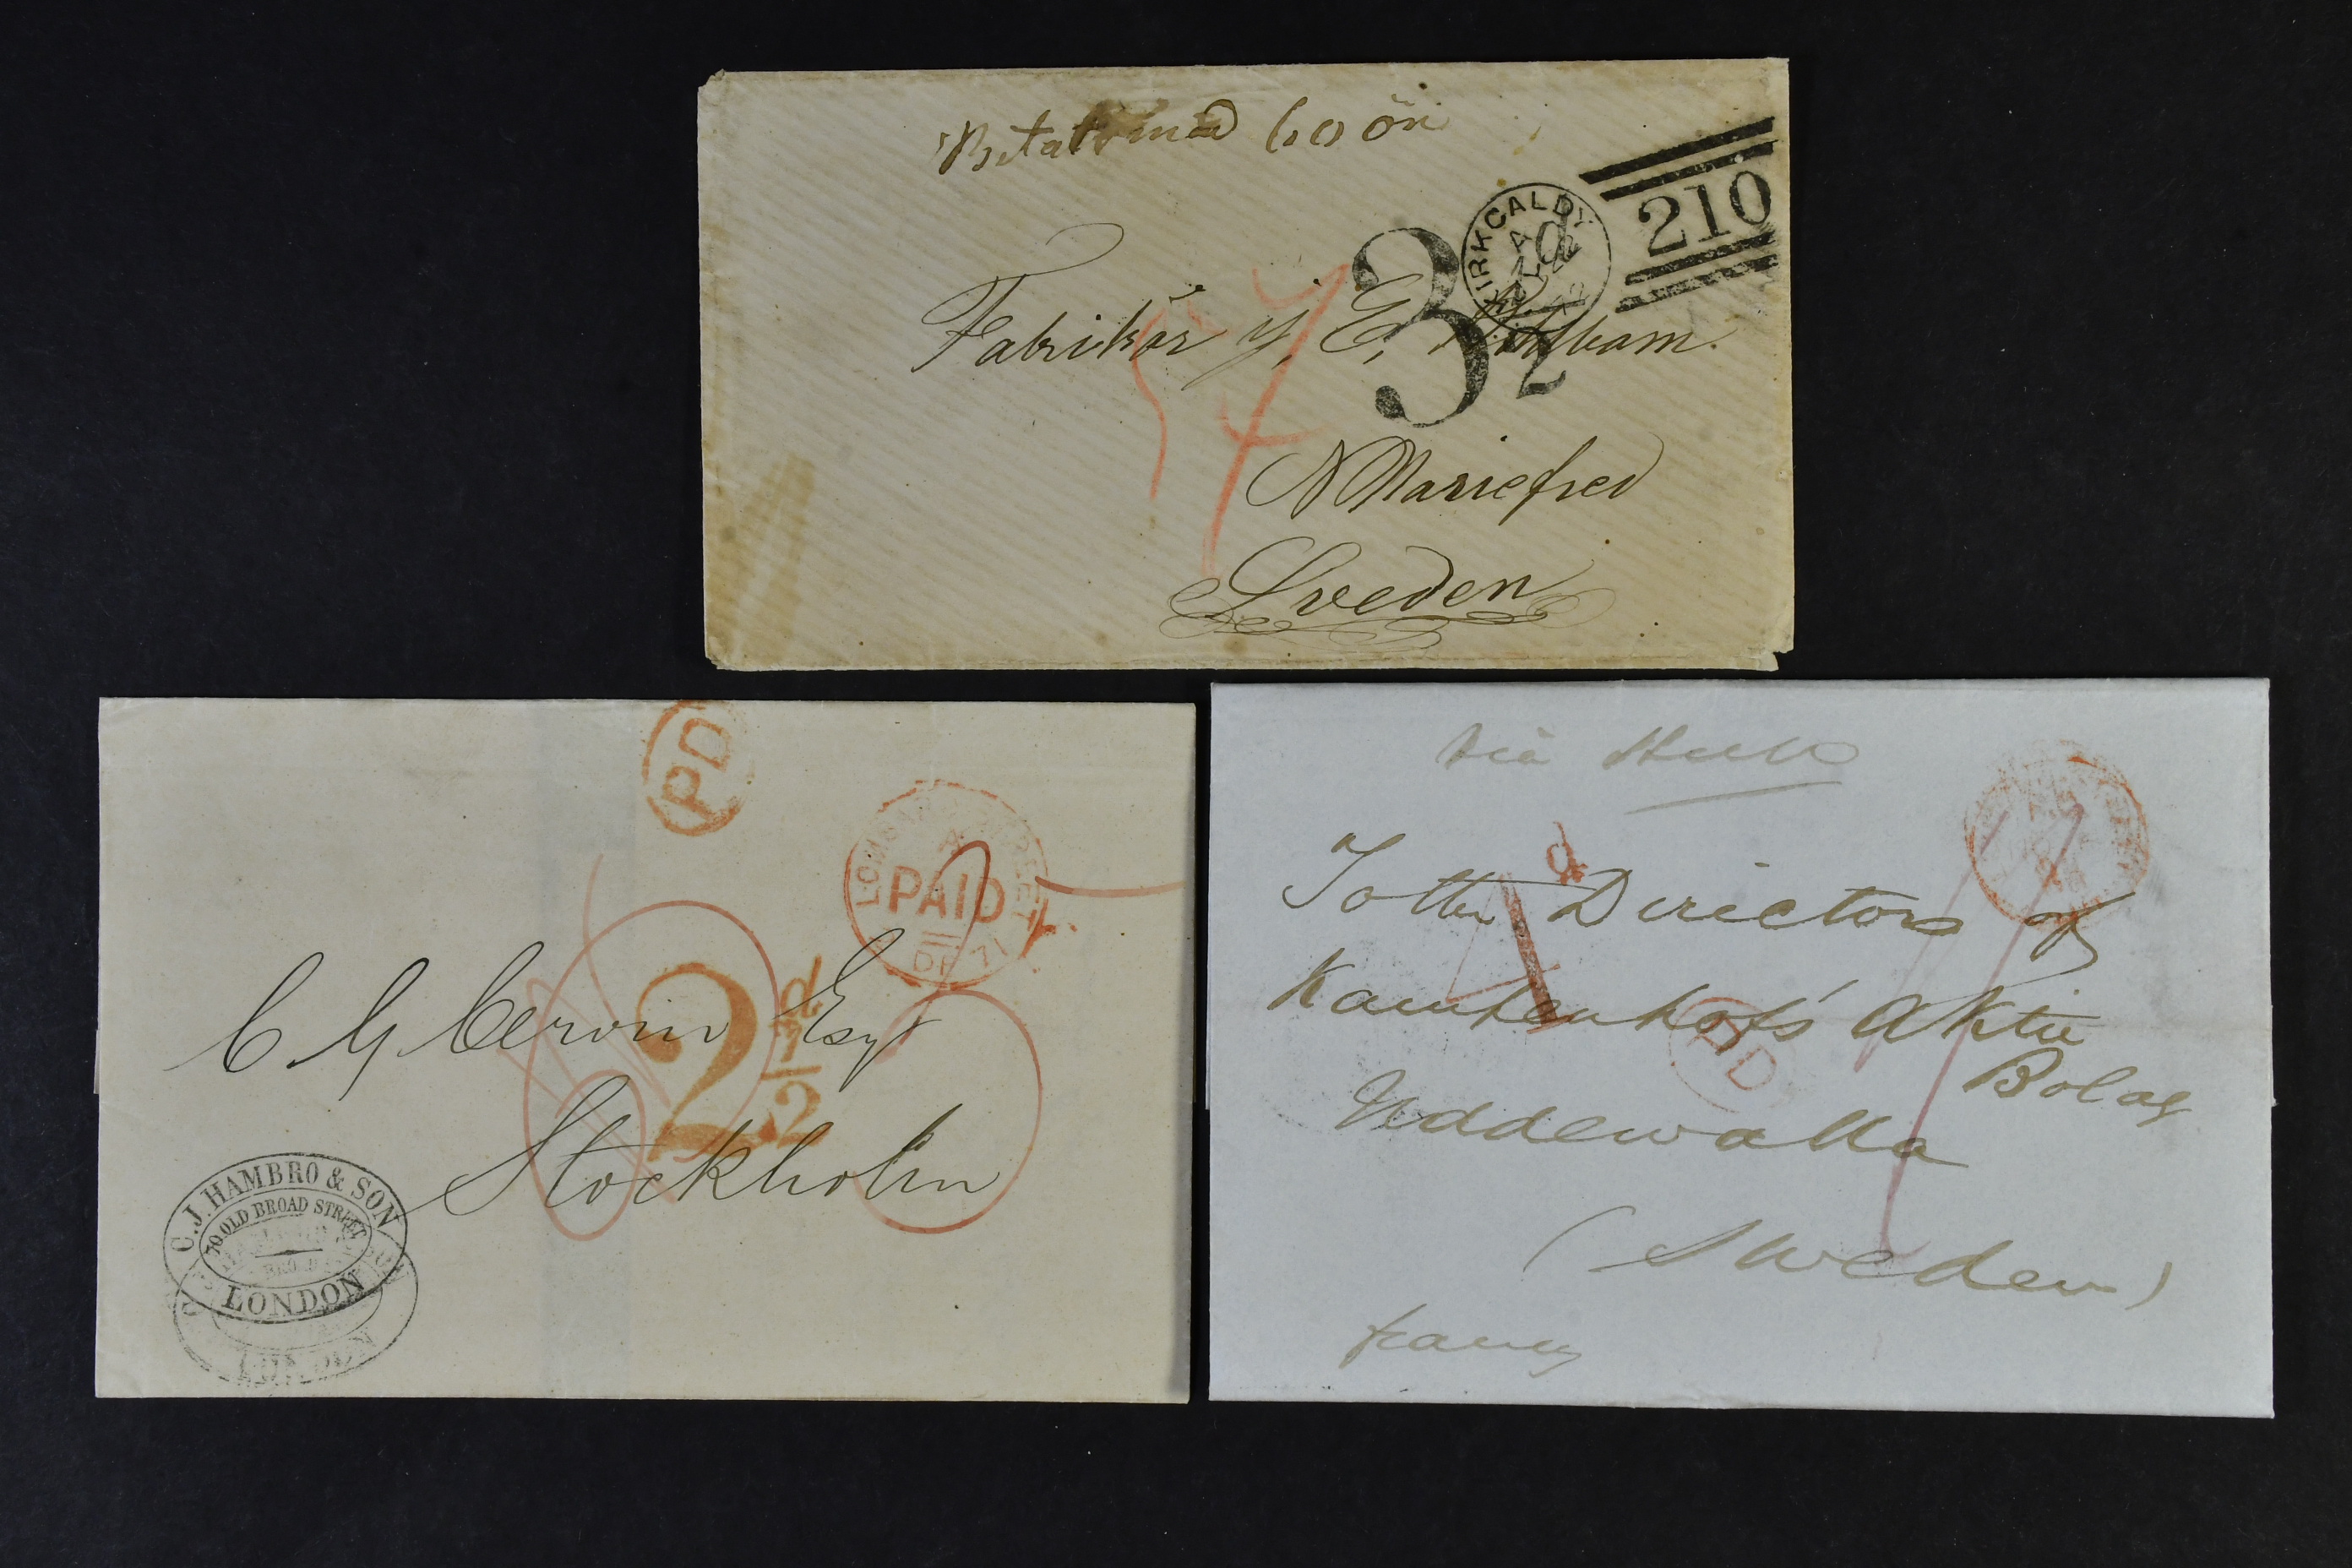 Betalt med 60 öre
KIRKCALDY
A
210
3½
d
Fabrikör J. E.
Mariefred
Sveden
PD
LOMBARD STREET
A
PAID
DE 71
2½d
C G Cervin Esqr
Stockholm
C. J. HAMBRO & SON
70 OLD BROAD STREET
LONDON
LONDON
Via Hull
1d
To the Directors of
Kampenhofs Aktie
Bolag
PD
Uddewalla
(Sweden)
franco